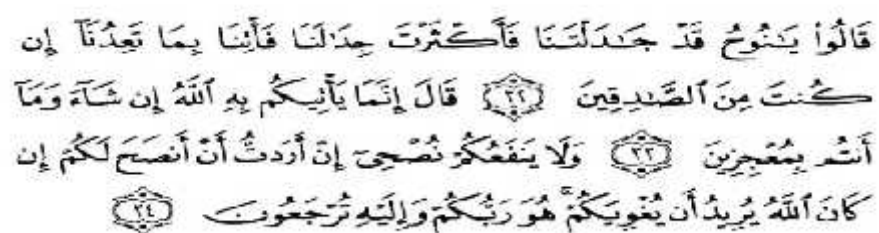 قَالُواْ يَـٰنُوحُ قَدْ جَـٰدَلْتَنَا فَأَكْثَرْتَ جِدَٰلَنَا فَأْتِنَا بِمَا تَعِدُنَآ إِن
كُنتَ مِنَ ٱلصَّـٰدِقِينَ ﴿٣٢﴾ قَالَ إِنَّمَا يَأْتِيكُم بِهِ ٱللَّهُ إِن شَآءَ وَمَآ
أَنتُم بِمُعْجِزِينَ ﴿٣٣﴾ وَلَا يَنفَعُكُمْ نُصْحِىٓ إِنْ أَرَدتُّ أَنْ أَنصَحَ لَكُمْ إِن
كَانَ ٱللَّهُ يُرِيدُ أَن يُغْوِيَكُمْ ۚ هُوَ رَبُّكُمْ وَإِلَيْهِ تُرْجَعُونَ ﴿٣٤﴾